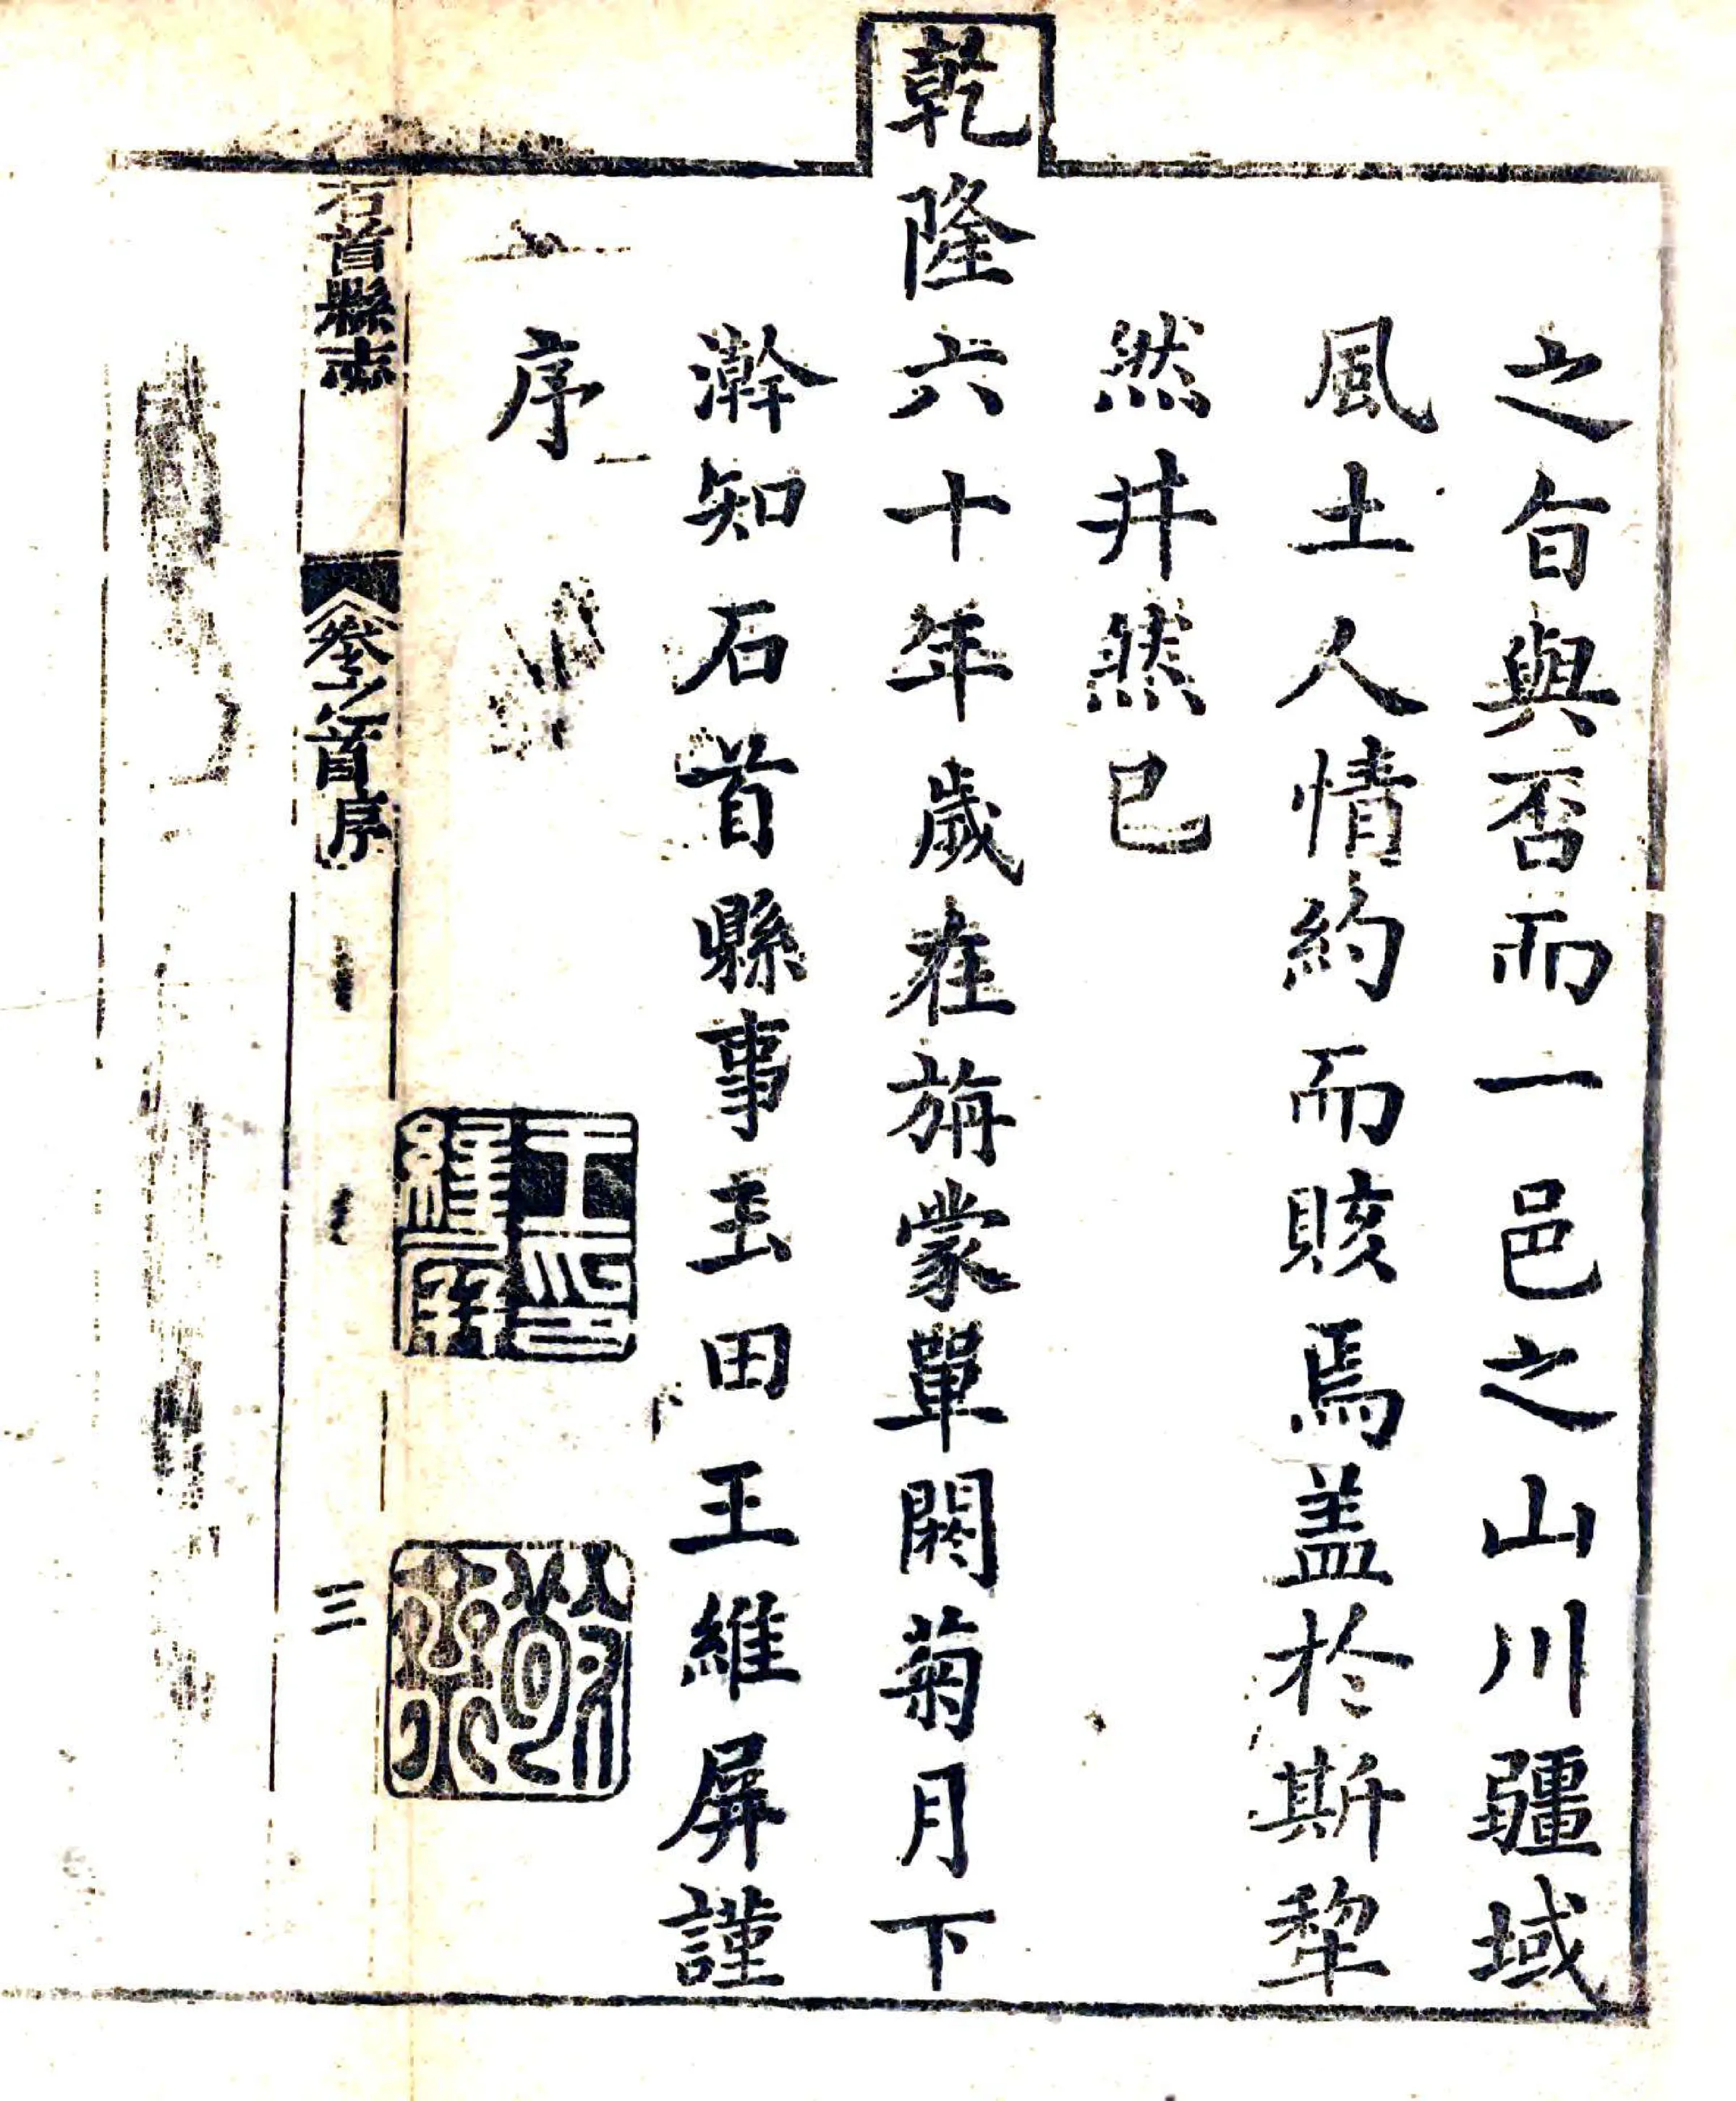 之旨與否而一邑之山川疆域
風土人情約而賅焉盖於斯犂
然井然已
乾隆六十年歲在旃蒙單閼菊月下
澣知石首縣事玉田王維屏謹
序
王印維屏
石首縣志
卷之首序
三